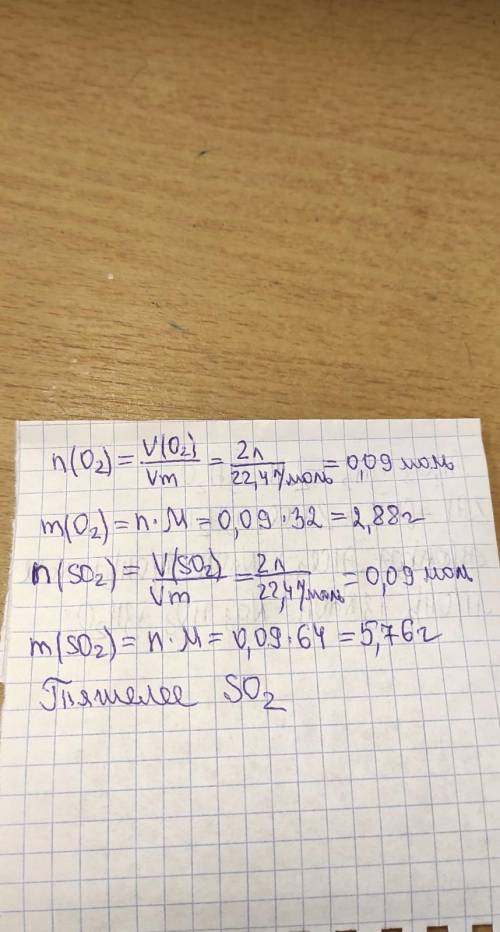 n(O₂) = V(O₂)/Vm = 2л/22,4 л/моль = 0,09 моль
m(O₂) = n · M = 0,09 · 32 = 2,88г
n(SO₂) = V(SO₂)/Vm = 2л/22,4 л/моль = 0,09 моль
m(SO₂) = n · M = 0,09 · 64 = 5,76г
Тяжелее SO₂